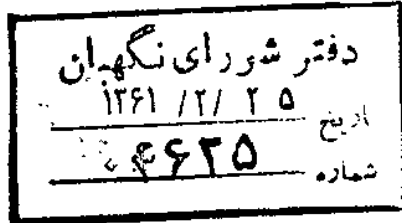 دفتر شورای نگهبان
تاریخ ۱۳۶۱ /۲/ ۲ ۵
شماره